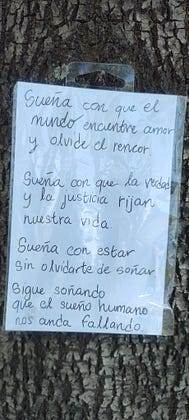 Sueña con que el
mundo encuentre amor
y olvide el rencor.
Sueña con que la verdad
y la justicia rijan
nuestra vida
Sueña con estar
sin olvidarte de soñar
Sigue soñando
que el sueño humano
nos anda fallando.